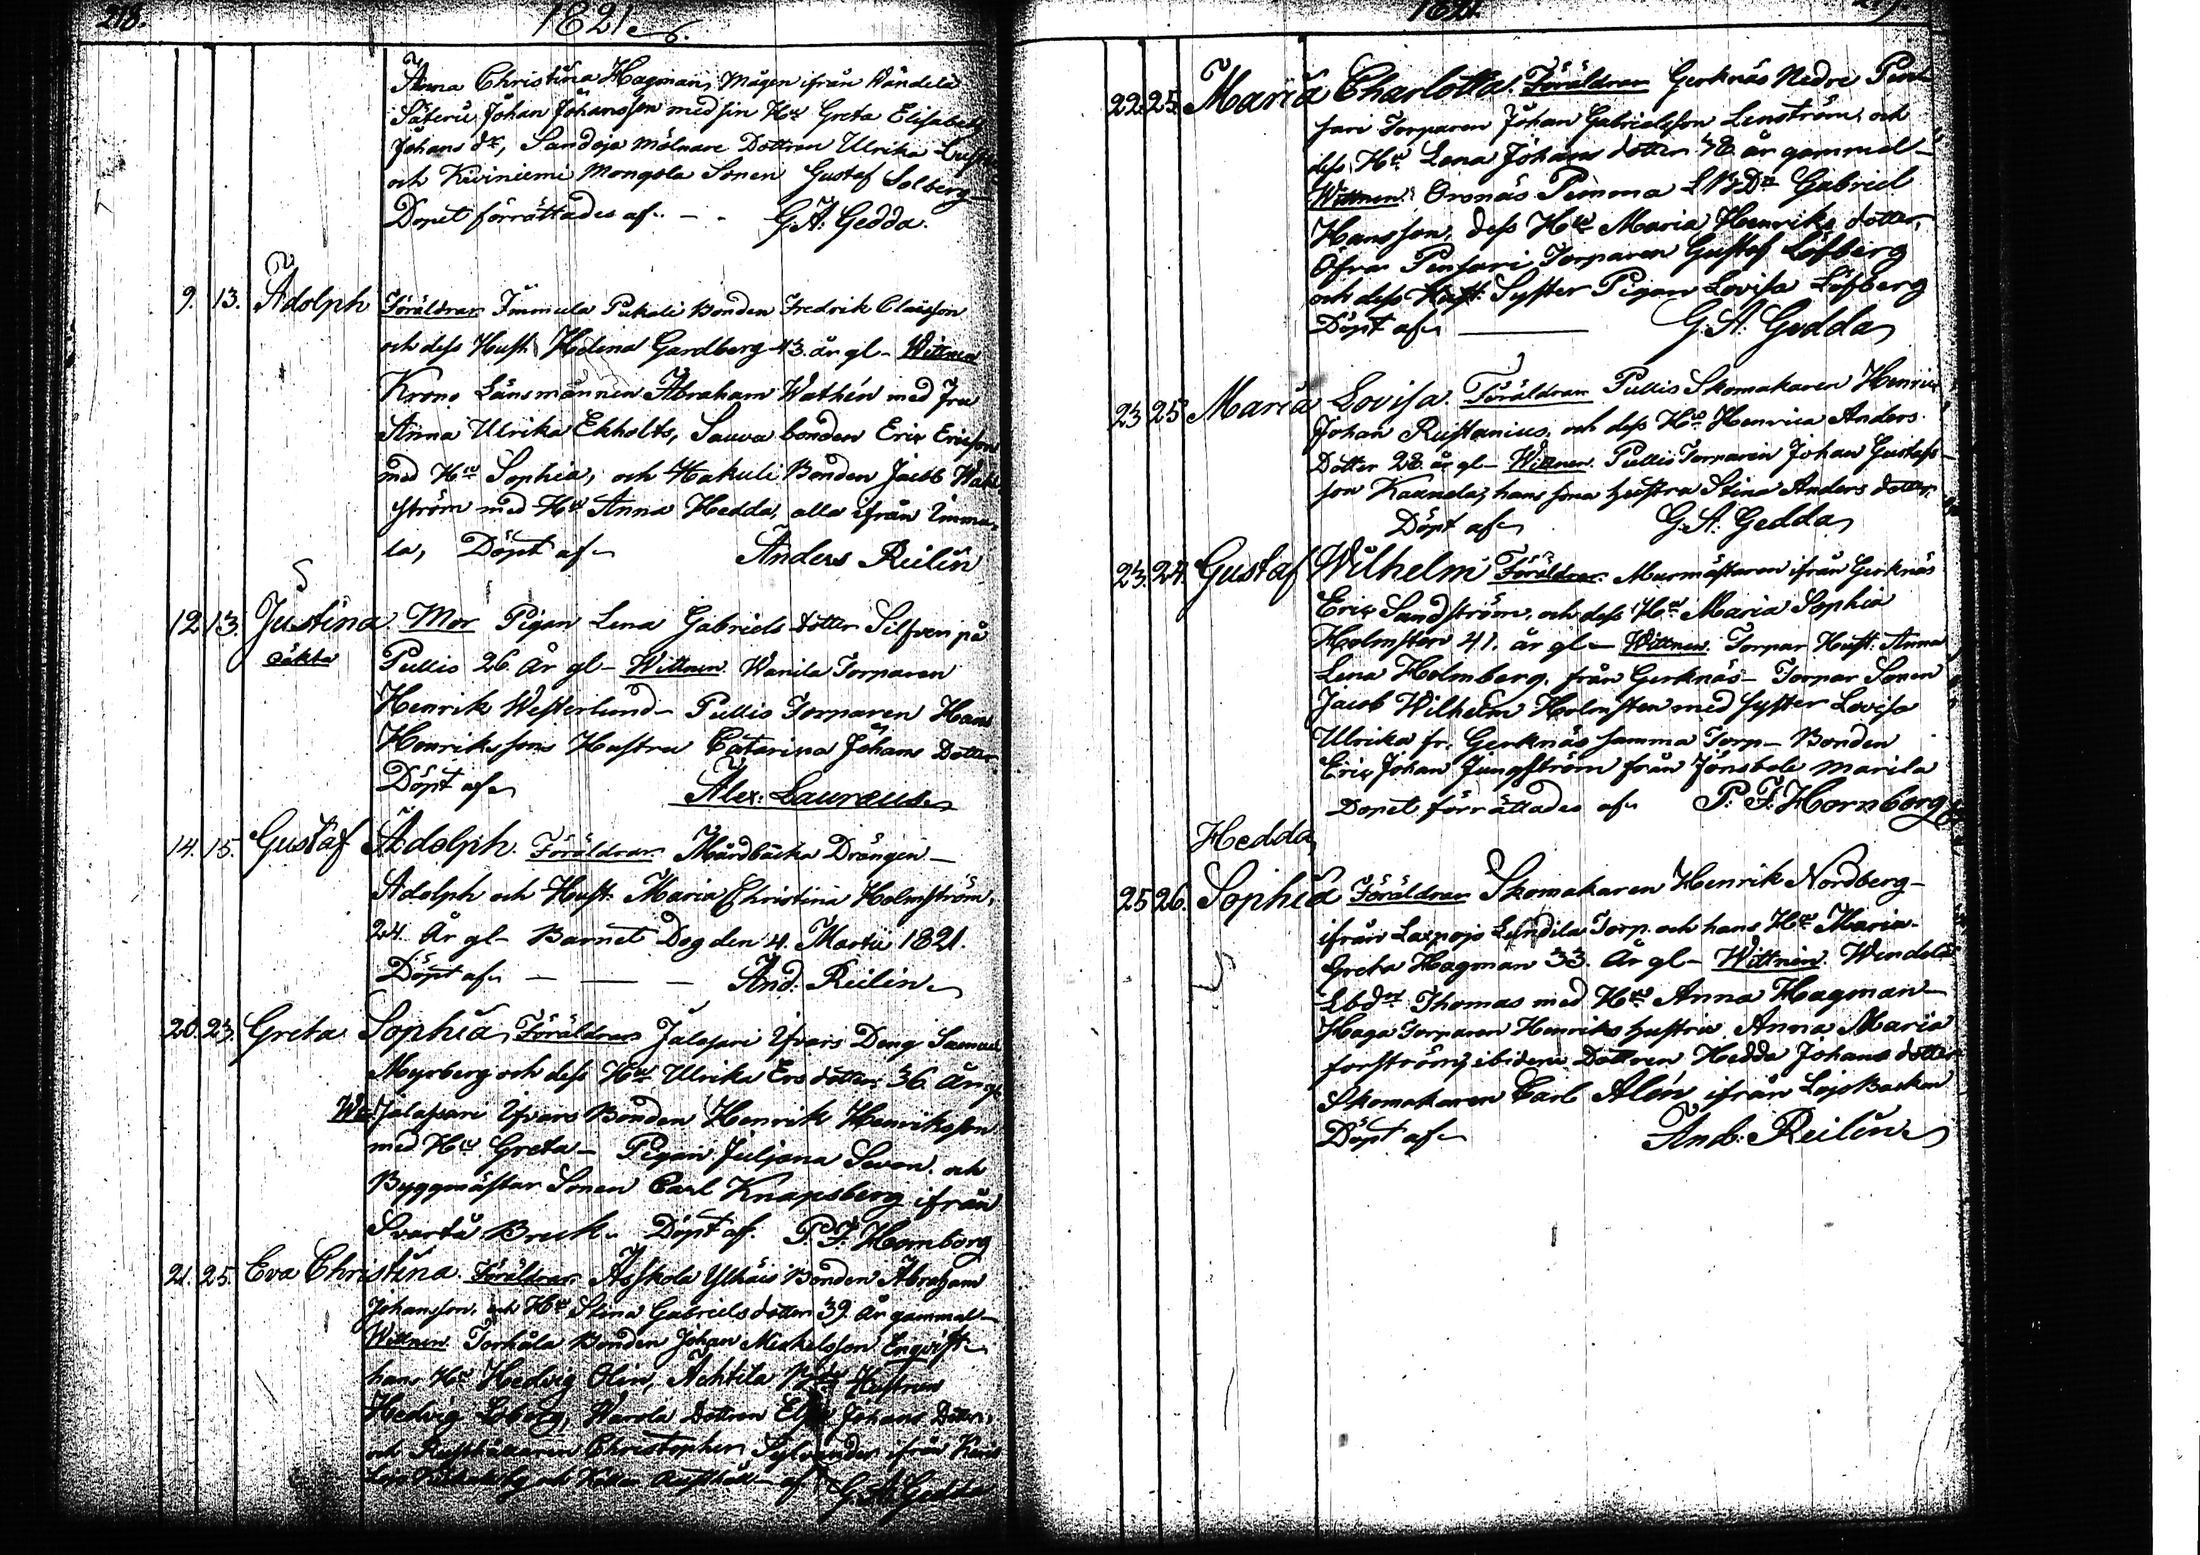 218.
1821
Anna Christina Hagman, Mågen ifrån Wändelä
Säteri Johan Johansson med sin Hu Greta Elisabeth
Johans dr, Sandoja mölnare Dottren Ulrika
och Kiviniemi Mongola Sonen Gustaf Solberg
Dopet förrättades af. - - G. A. Gedda.
9. 13. Adolph Föräldrar Immula Pukali Bonden Fredrik Claësson
och dess Hust. Helena Gardberg 43. år gl - Wittnen
Krono Länsmannen Abraham Wathén med Fru
Anna Ulrika Ekholts, Sauva bonden Eric Ericsson
med Hu Sophia, och Hakuli Bonden Jacob
ström med Hu Anna Hedda, alla ifrån Immu-
la, Döpt af Anders Reilin
12 13. Justina Mor Pigan Lena Gabriels dotter Silfven på
oäkta Pullis 26 år gl - Wittnen Wanila Torparen
Henrik Westerlund - Pullis Torparen Hans
Henrikssons Hustru Catarina Johans Dotter
Döpt af Alex: Lauræus
14. 15. Gustaf Adolph. Föräldrar Mårdbäcka Drängen -
Adolph och Hust. Maria Christina Holmström,
24. År gl - Barnet Dog den 4. Martii 1821.
Döpt af - - - And. Reilin
20. 23. Greta Sophia Föräldrar Jalasari Yfvars Deng Samuel
Myrberg och dess Hu Ulrika Ers dotter 36 År gl
Wi: Jalassari Yfvars Bonden Henrik Henriksson
med Hu Greta - Pigan Juljana Sevon. och
Byggmästar Sonen Carl Knapsberg ifrån
Svartå Bruk. Döpt af. P. F. Hornborg
21. 25. Eva Christina. Föräldrar Asskola Ylhäis Bonden Abraham
Johansson, och Hu Stina Gabriels dotter 39. År gammal -
Wittnen Torhola Bonden Johan Michelsson Enqvist
hans Hu Hedvig Olin, Achtila Hustrun
Hedvig Loberg, Warola dottren Johans Dotter,
och Christopher Sylvander ifrån
af G. A. Gedda
1821.
22. 25. Maria Charlotta. Föräldrar Gerknäs Nedre Pent-
sari Torparen Johan Gabrielsson Lenström, och
dess Hu Lena Johans dotter 48 år gammal -
Wittnen Oronäs Pemma Gabriel
Hansson, dess Hu Maria Henriks dotter,
Öfra Pentsari Torparen Gustaf Löfberg
och dess Hust. Syster Pigan Lovisa Löfberg
Döpt af - G. A. Gedda
23 25 Maria Lovisa. Föräldrar Pullis Skomakaren Henric
Johan Rustanius, och dess Hu Henrica Anders
Dotter 28. år gl - Wittnen. Pullis Torparen Johan Gustafs-
son Kaunela, hans sona hustru Stina Anders dotter
Döpt af G. A. Gedda
23. 24. Gustaf Wilhelm Föräldrar. Murmästaren ifrån Gerknäs
Eric Sandström, och dess Hu Maria Sophia
Holmsten 41. år gl - Wittnen. Torpar Hust. Anna
Lena Holmberg, från Gerknäs - Torpar Sonen
Jacob Wilhelm Holmsten med syster Lovisa
Ulrika fr. Gerknäs samma Torp - Bonden
Eric Johan Ljungström från Jönsböle Marila
Dopet förrättades af P. F. Hornborg
Hedda
25 26. Sophia Föräldrar Skomakaren Henrik Nordberg -
ifrån Laxpojo Lundila Torp. och hans Hu Maria
Greta Hagman 33. År gl - Wittnen. Wendelä
Thomas med Hu Anna Hagman -
Haga Torparen Henriks hustru Anna Maria
forsström, ibidem Dottren Hedda Johans dotter
Skomakaren Carl Alén ifrån Lojo Backen
Döpt af And: Reilin